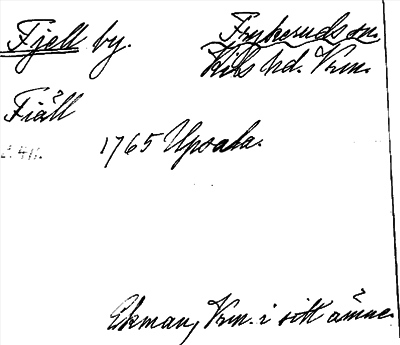 Fjell by. Frykeruds sn.
Kils hd. Vrm.
Fiäll
1765 Upsala.
Ekman, Vrm. i sitt ämne.